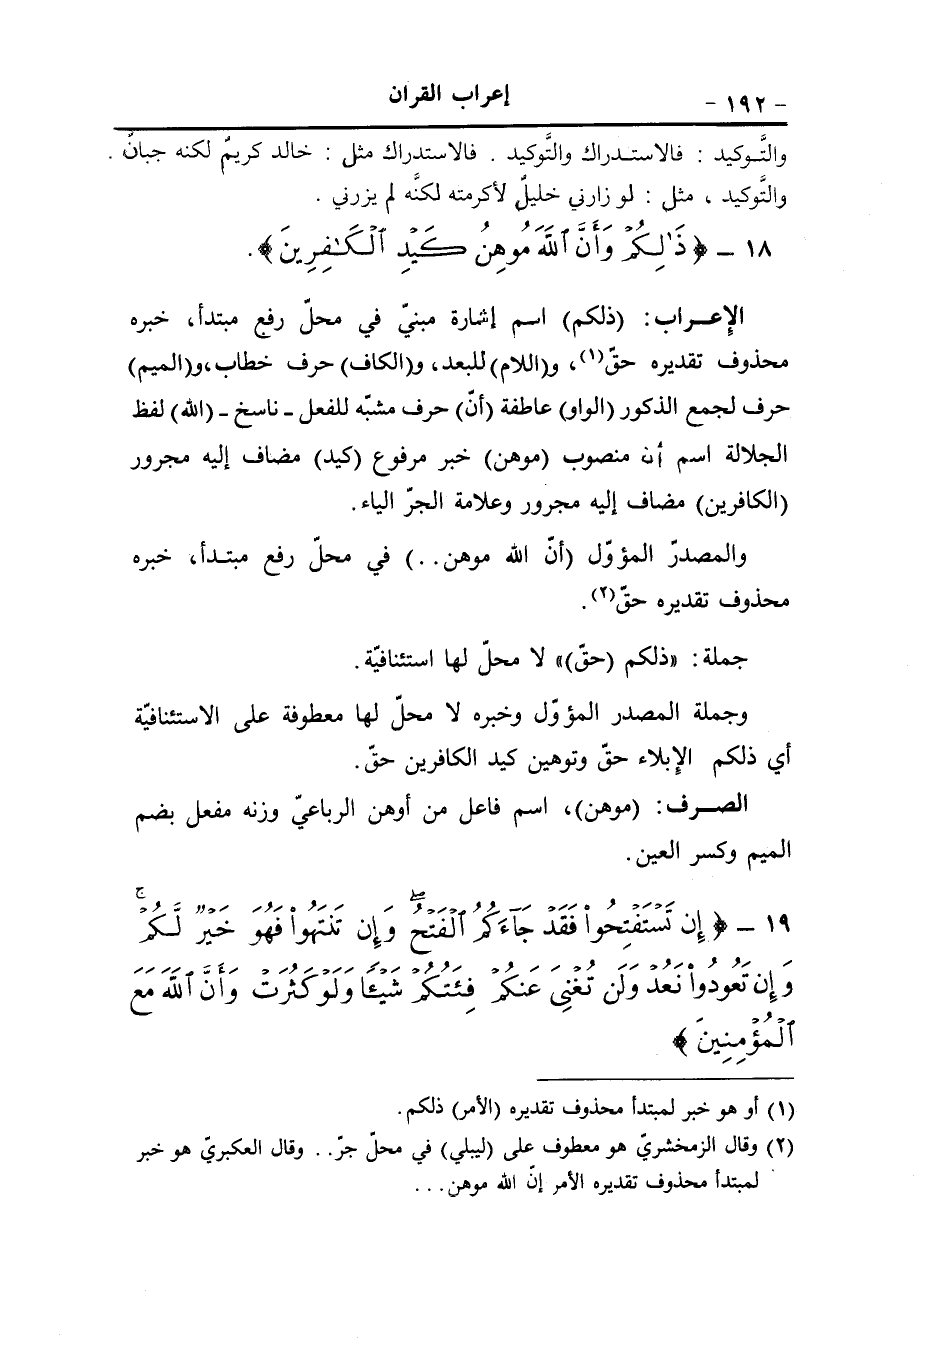 - ١٩٢ - إعراب القرآن
والتَّوكيد : فالاستدراك والتَّوكيد . فالاستدراك مثل : خالد كريمٌ لكنه جبانٌ .
والتَّوكيد ، مثل : لو زارني خليلٌ لأكرمته لكنَّه لم يزرني .
١٨ - ﴿ ذَٰلِكُمْ وَأَنَّ ٱللَّهَ مُوهِنُ كَيْدِ ٱلْكَٰفِرِينَ ﴾.
الإعـراب: (ذلكم) اسم إشارة مبنيّ في محلّ رفع مبتدأ، خبره
محذوف تقديره حقّ(١)، و(اللام) للبعد، و(الكاف) حرف خطاب، و(الميم)
حرف لجمع الذكور (الواو) عاطفة (أنّ) حرف مشبّه للفعل ـ ناسخ ـ (الله) لفظ
الجلالة اسم أن منصوب (موهن) خبر مرفوع (كيد) مضاف إليه مجرور
(الكافرين) مضاف إليه مجرور وعلامة الجرّ الياء.
والمصدرّ المؤوّل (أنّ الله موهن..) في محلّ رفع مبتدأ، خبره
محذوف تقديره حقّ(٢).
جملة: «ذلكم (حقّ)» لا محلّ لها استئنافيّة.
وجملة المصدر المؤوّل وخبره لا محلّ لها معطوفة على الاستئنافيّة
أي ذلكم الإبلاء حقّ وتوهين كيد الكافرين حقّ.
الصـرف: (موهن)، اسم فاعل من أوهن الرباعيّ وزنه مفعل بضم
الميم وكسر العين.
١٩ - ﴿ إِن تَسْتَفْتِحُوا۟ فَقَدْ جَآءَكُمُ ٱلْفَتْحُ ۖ وَإِن تَنتَهُوا۟ فَهُوَ خَيْرٌ لَّكُمْ ۚ
وَإِن تَعُودُوا۟ نَعُدْ وَلَن تُغْنِىَ عَنكُمْ فِئَتُكُمْ شَيْـًٔا وَلَوْ كَثُرَتْ وَأَنَّ ٱللَّهَ مَعَ
ٱلْمُؤْمِنِينَ ﴾
(١) أو هو خبر لمبتدأ محذوف تقديره (الأمر) ذلكم.
(٢) وقال الزمخشريّ هو معطوف على (ليبلي) في محلّ جرّ.. وقال العكبريّ هو خبر
لمبتدأ محذوف تقديره الأمر إنّ الله موهن...